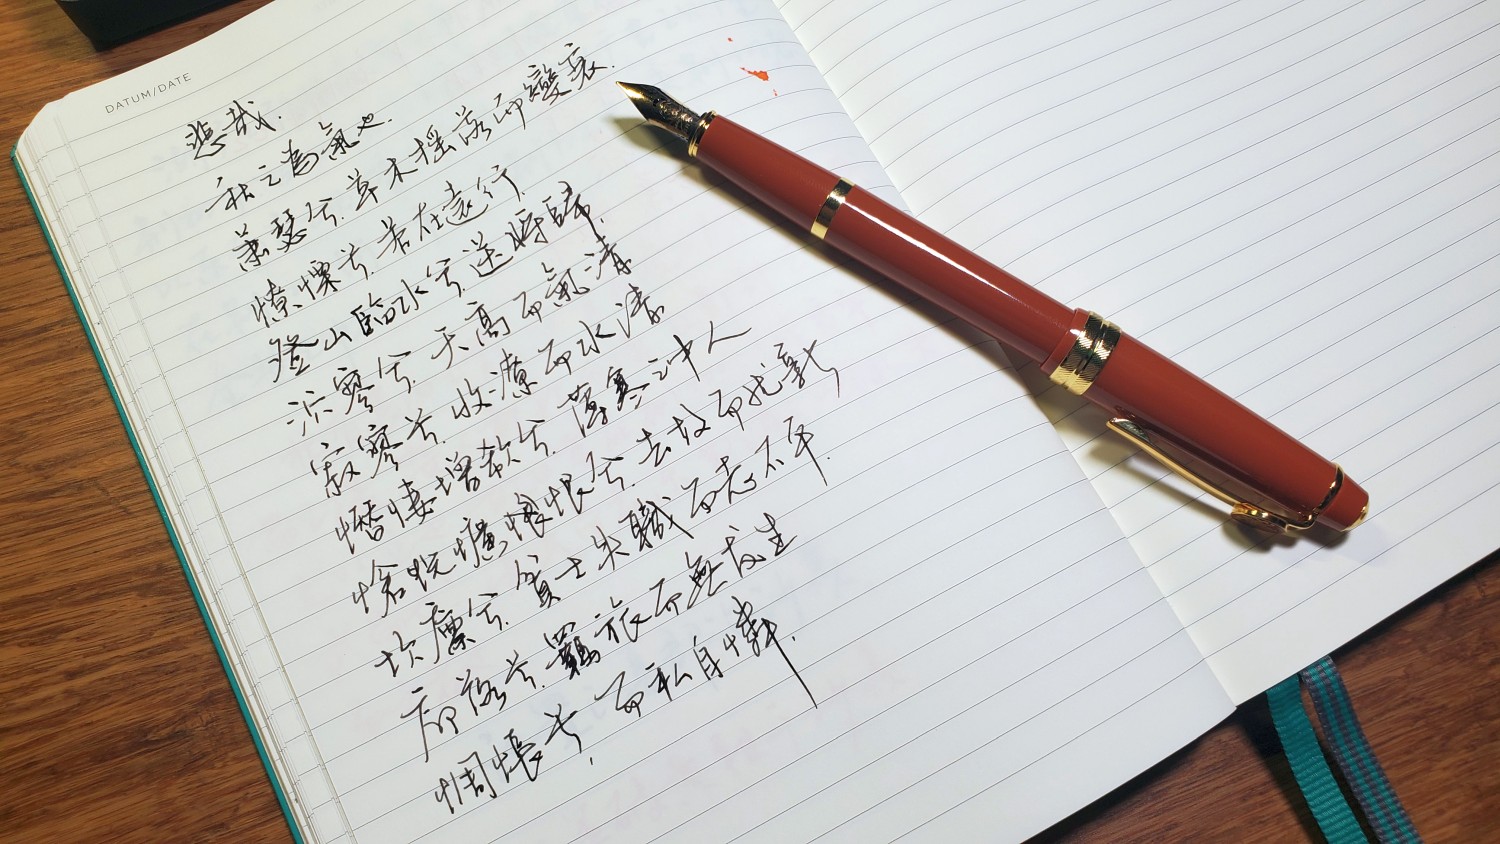 DATUM/DATE
悲哉.
秋之為氣也.
蕭瑟兮.草木摇落而變衰.
憭慄兮.若在遠行.
登山臨水兮.送將歸.
泬寥兮.天高而氣清
寂寥兮.收潦而水清
憯悽增欷兮.薄寒之中人
愴怳懭悢兮.去故而就新
坎廩兮.貧士失職而志不平.
廓落兮.羈旅而無友生
惆悵兮.而私自憐.